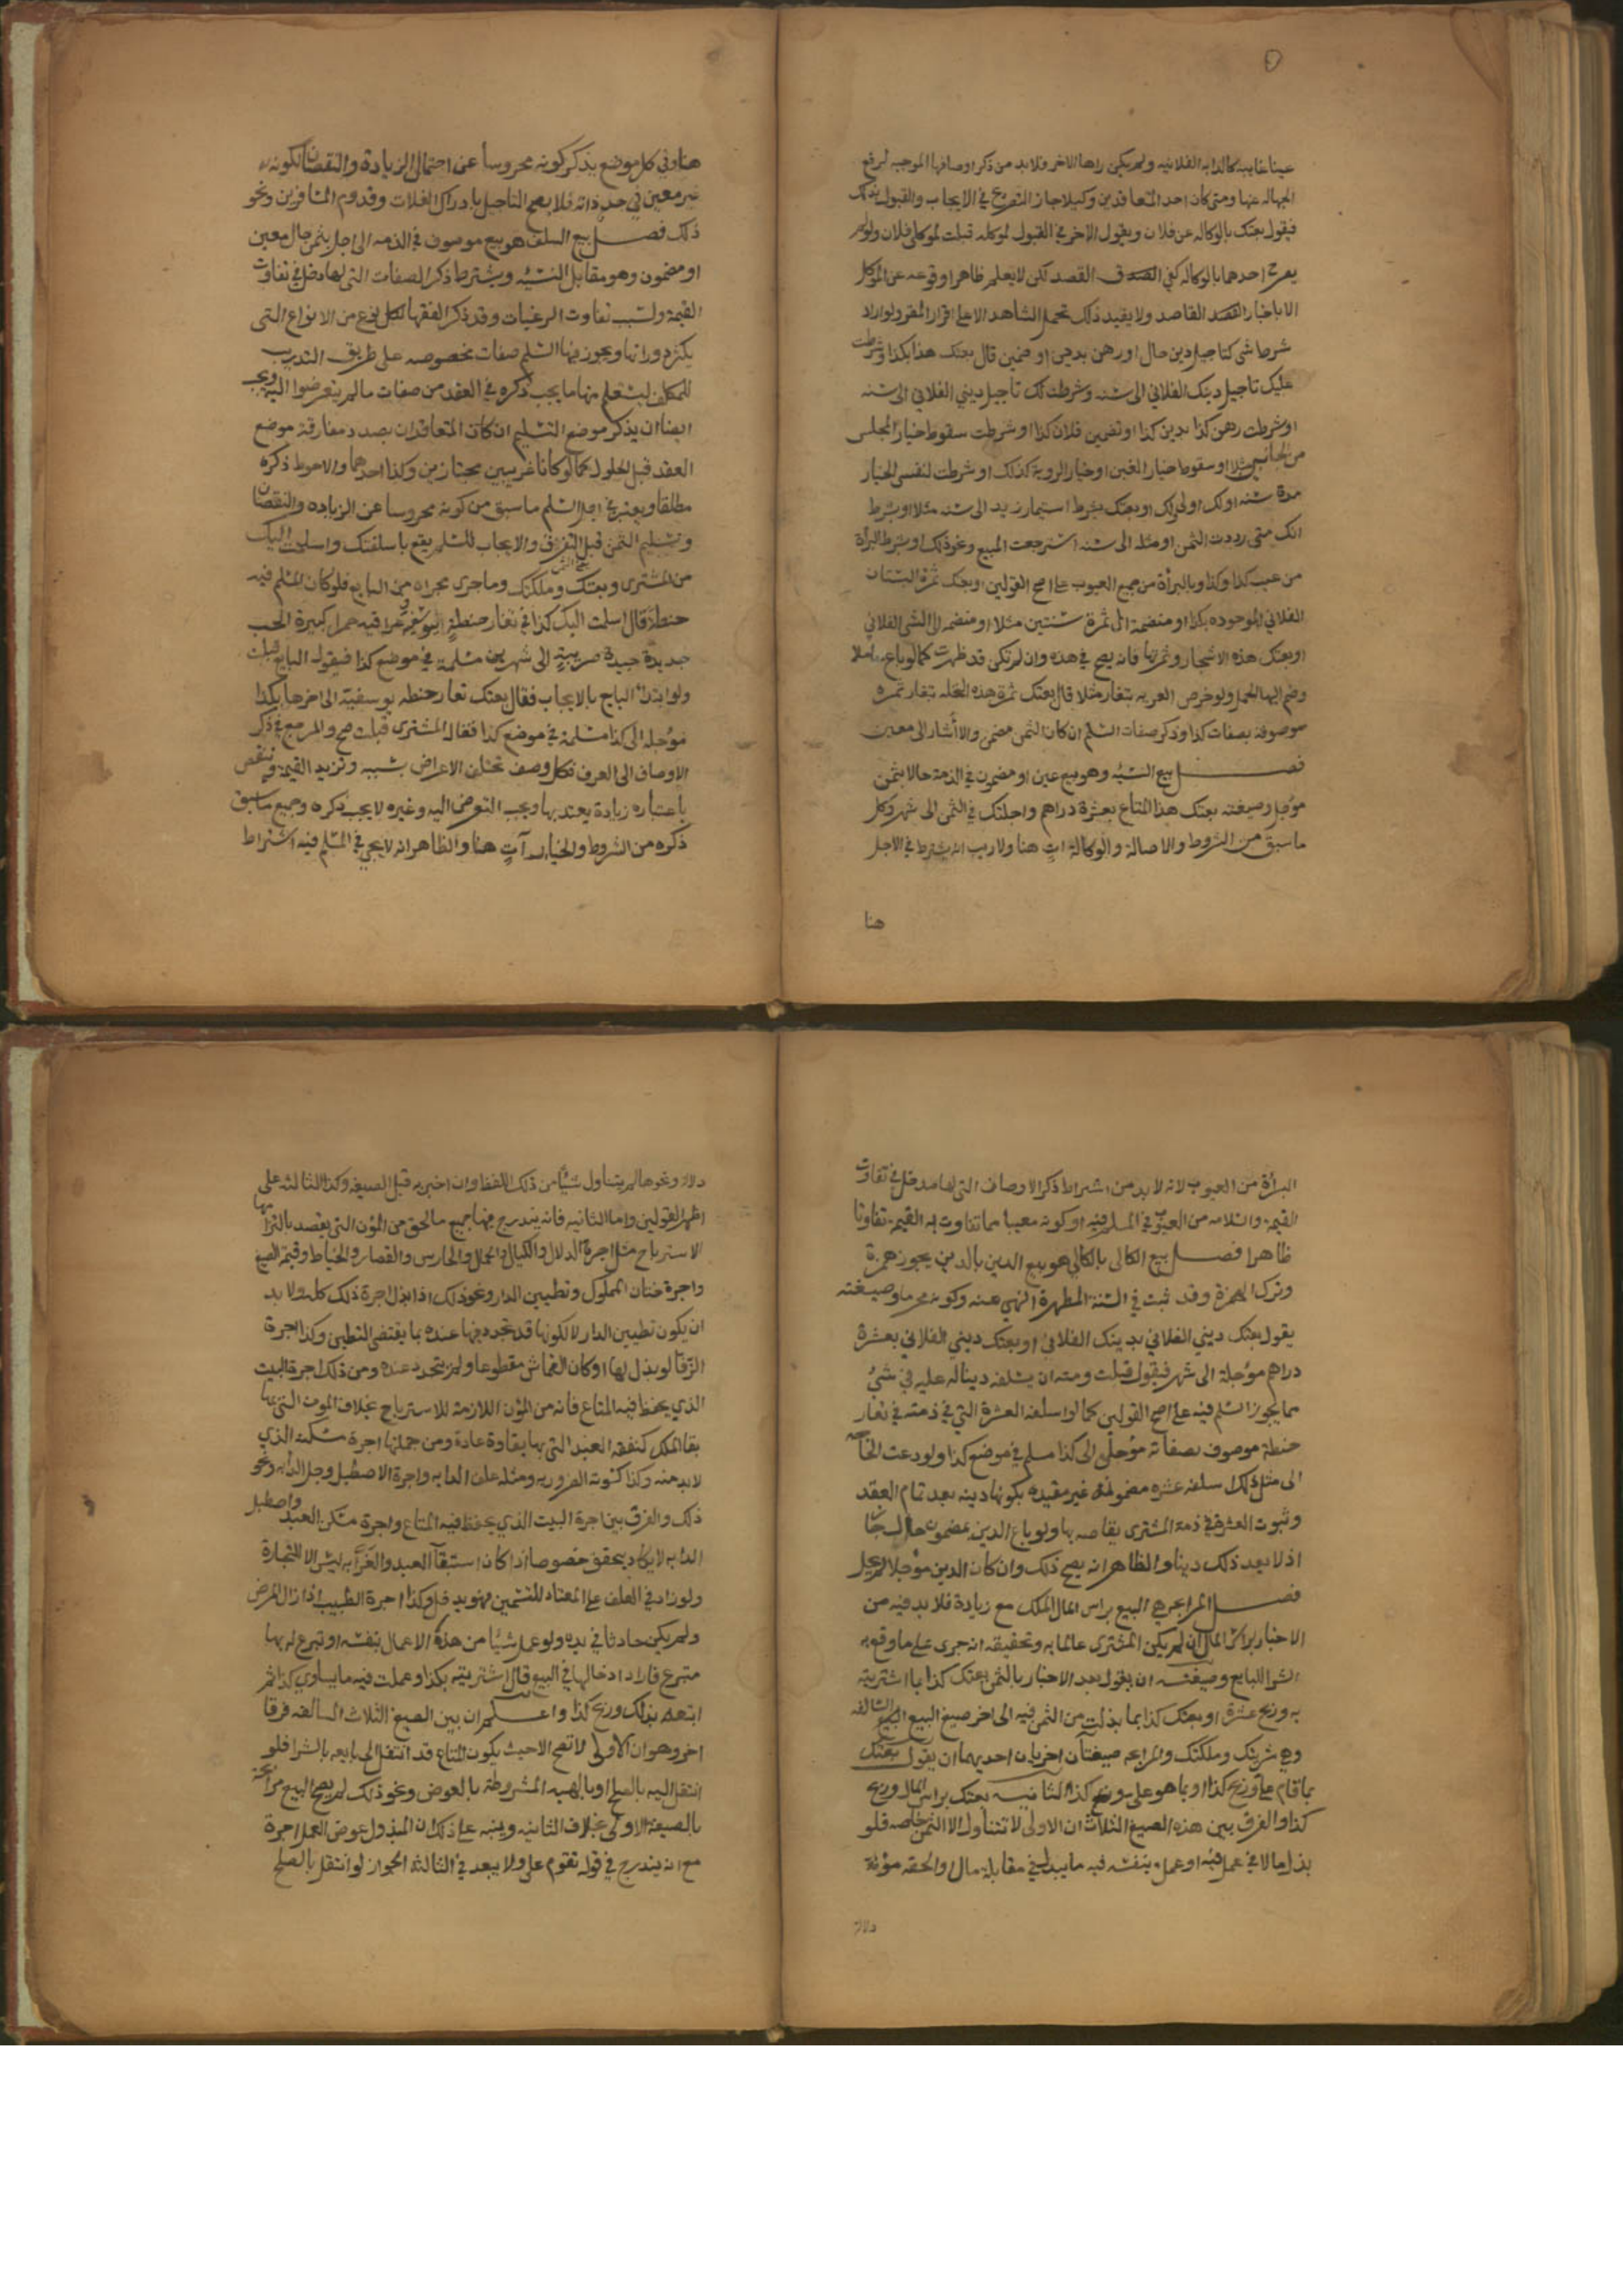 عينا غايبه كالدابه الفلانيه ولم يكن راها الاخر فلابد من ذكر اوصافها الموجبه لرفع
الجهاله عنها ومتى كان احد المتعاقدين وكيلا جاز التصريح في الايجاب والقبول بذلك
فيقول بعتك بالوكاله عن فلان ويقول الاخر في القبول لموكله قبلت لموكلي فلان ولو لم
يصرح احدهما بالوكاله كفى القصد لكن لا يعلم ظاهرا وقوعه عن الموكل
الا باخبار القاصد ولا يفيد ذلك تحمل الشاهد الا على اقرار المقر ولو اراد
شرط شى كتاجيل دين حال او رهن بدين او ضمين قال بعتك هذا بكذا وشرطت
عليك تاجيل دينك الفلاني الى سنه وشرطت لك تاجيل ديني الفلاني الى سنه
او شرطت رهن كذا بدين كذا او تضمين فلان كذا او شرطت سقوط خيار المجلس
من الجانبين مثلا او سقوط خيار الغبن او خيار الروية كذلك او شرطت لنفسى الخيار
مدة سنه او لك او لي ولك او بعتك بشرط استيمار زيد الى سنه مثلا او بشرط
انك متى رددت الثمن او مثله الى سنه استرجعت المبيع ونحو ذلك او بشرط البرأة
من عيب كذا وكذا وبالبرأة من جميع العيوب على اصح القولين او بعتك ثمرة البستان
الفلاني الموجوده بكذا او منضمة الى ثمرة سنتين مثلا او منضمه الى الشى الفلاني
او بعتك هذه الاشجار وثمرتها فانه يصح في هذه وان لم تكن قد ظهرت كما لو باع حاملا
وضم اليها الحمل ولو خرص العريه بتغار مثلا قال بعتك ثمرة هذه النخله بتغار تمره
موصوفة بصفات كذا وذكر صفات السلم ان كان الثمن مضمن والا أشار الى معين
فصل بيع النسيه وهو بيع عين او مضمون في الذمة حالا بثمن
مؤجل وصيغته بعتك هذا المتاع بعشرة دراهم واجلتك في الثمن الى شهر وكل
ما سبق من الشروط والاصالة والوكالة ات هنا ولا ريب انه يشترط في الاجل
هنا
هنا وفي كل موضع يذكر كونه محروسا عن احتمال الزيادة والنقصان لكونه
غير معين في حد ذاته فلا يصح التاجيل بادراك الغلات وقدوم المسافرين ونحو
ذلك فصل بيع السلف هو بيع موصوف في الذمه الى اجل بثمن حال معين
او مضمون وهو مقابل النسيه ويشترط ذكر الصفات التي لها دخل في تفاوت
القيمة ولسبب تفاوت الرغبات وقد ذكر الفقها لكل نوع من الانواع التي
يكثر دورانها ويجوز فيها السلم صفات بخصوصه على طريق التدريب
للمكلف ليستعلم منها ما يجب ذكره في العقد من صفات ما لم يتعرضوا اليه ويجب
ايضا ان يذكر موضع التسليم ان كان المتعاقدان بصدد مفارقة موضع
العقد قبل الحلول كما لو كانا غريبين مجتازين وكذا احدهما والاحوط ذكره
مطلقا ويعتبر في اجل السلم ما سبق من كونه محروسا عن الزياده والنقصان
وتسليم الثمن قبل التفرق والايجاب للسلم يقع باسلفتك واسلمت اليك
من المشترى وبعتك وملكتك وما جرى مجراه من البايع فلو كان المسلم فيه
حنطة قال اسلمت اليك كذا في تغار حنطة يوسفية عراقيه حمرا كبيرة الحب
جديدة جيدة صريبة الى شهرين مسلمة في موضع كذا فيقول البايع قبلت
ولو ابتدأ البايع بالايجاب فقال بعتك تغار حنطه يوسفيه الى اخرها بكذا
مؤجله الى كذا مسلمة في موضع كذا فقال المشترى قبلت صح والمرجع في ذكر
الاوصاف الى العرف فكل وصف تختلف الاعراض بسببه وتزيد القيمة وتنقص
باعتباره زيادة يعتد بها ويجب التعرض اليه وغيره لا يجب ذكره وجميع ما سبق
ذكره من الشروط والخيار آت هنا والظاهر انه لا يجي في المسلم فيه اشتراط
البرأة من العيوب لانه لابد من اشتراط ذكر الاوصاف التي لها مدخل في تفاوت
القيمة والسلامه من العيوب في المسلم فيه او كونه معيبا مما تتفاوت به القيمة تفاوتا
ظاهرا فصل بيع الكالى بالكالي هو بيع الدين بالدين يجوز همزة
وترك الهمزة وقد ثبت في السنة المطهرة النهي عنه وكونه محرما وصيغته
يقول بعتك ديني الفلاني بدينك الفلاني او بعتك ديني الفلاني بعشرة
دراهم مؤجلة الى شهر فيقول قبلت ومنه ان يسلفه ديناله عليه في شئ
مما يجوز السلم فيه على اصح القولين كما لو اسلفه العشرة التي في ذمته في تغار
حنطة موصوف بصفاته مؤجلة الى كذا مسلم في موضع كذا ولو دعت الحاجه
الى مثل ذلك اسلفه عشره مضمونه غير مقيده بكونها دينه بعد تمام العقد
وثبوت العشرة في ذمة المشترى يقاصه بها ولو باع الدين بمضمون حال جاز
اذ لا يعد ذلك دينا والظاهر انه يصح ذلك وان كان الدين مؤجلا لم يحل
فصل المرابحة هي البيع براس المال الملك مع زيادة فلابد فيه من
الاخبار براس المال ان لم يكن المشترى عالما به وتحقيقه انه جرى على ما وقع به
الشرا للبايع وصيغته ان يقول بعد الاخبار بالثمن بعتك كذا بما اشتريته
به وربح عشرة او بعتك كذا بما بذلت من الثمن فيه الى اخر صيغ البيع السالفه
وهي شريتك وملكتك وللمرابحه صيغتان اخريان احديهما ان يقول بعتك
بما قام علي وربح كذا او بما هو علي وربح كذا الثانيه بعتك براس المال وربح
كذا والفرق بين هذه الصيغ الثلاث ان الاولى لا تتناول الا الثمن خاصه فلو
بذل مالا في عمل فيه او عمل بنفسه فيه ما يبذل في مقابله مال او الحقه مؤنة
دلالة
دلالة ونحوها لم يتناول شيئا من ذلك اللفظ وان اخبر به قبل الصيغه وكذا الثالثه على
اظهر القولين واما الثانيه فانه يندرج فيها جميع ما لحق من المؤن التي يقصد بالتزامها
الاسترباح مثل اجرة الدلال والكيال والحمال والحارس والقصار والخياط وقيمة الصبغ
واجرة ختان المملوك وتطيين الدار ونحو ذلك اذا بذل اجرة ذلك كله ولا بد
ان يكون تطيين الدار لا لكونها قد تجدد فيها عنده ما يقتضى التطيين وكذا اجرة
الرفا لو بذل لها او كان القماش مقطوعا ولم يتجدد عنده ومن ذلك اجرة البيت
الذي يحفظ فيه المتاع فانه من المؤن اللازمة للاسترباح بخلاف المون التي بها
بقا الملك كنفقه العبد التي بها بقاوه عادة ومن جملتها اجرة مسكنه الذي
لا بد منه وكذا كسوته الضروريه ومثله علف الدابه واجرة الاصطبل وجل الدابه ونحو
ذلك والفرق بين اجرة البيت الذي يحفظ فيه المتاع واجرة مسكن العبد واصطبل
الدابه لا يكاد يتحقق خصوصا اذا كان استبقآ العبد والدابه ليس الا للتجارة
ولو زاد في العلف على المعتاد للتسمين فهو يدخل وكذا اجرة الطبيب اذا زال المرض
ولم يكن حادثا في يده ولو عمل شيئا من هذه الاعمال بنفسه او تبرع له بها
متبرع فاراد ادخالها في البيع قال اشتريته بكذا وعملت فيه ما يساوي كذا ثم
ابتعته بذلك وربح كذا واعلم ان بين الصيغ الثلاث السالفه فرقا
اخر وهو ان الاولى لا تصح الا حيث يكون المتاع قد انتقل الى بايعه بالشرا فلو
انتقل اليه بالصلح او بالهبه المشروطة بالعوض ونحو ذلك لم يصح البيع مرابحة
بالصيغة الاولى بخلاف الثانيه وينبه على ذلك ان المبذول عوض العمل اجرة
مع انه يندرج في قوله تقوم علي ولا يبعد في الثالثه الجواز لو انتقل بالصلح